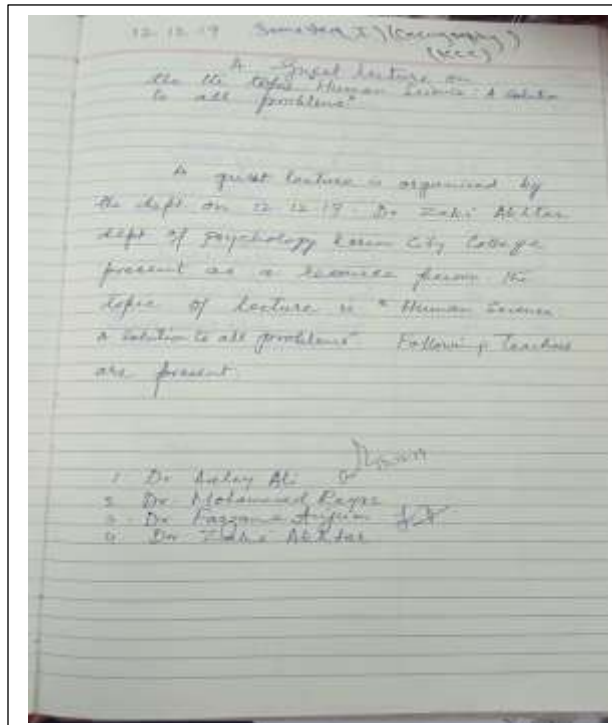 12.12.19 Semester I) (Geography)
(KCC)
A Guest lecture on
the the topic Human Science: A solution
to all problems"
A guest lecture is organised by
the dept on 12.12.19. Dr Zaki Akhtar
dept of psychology Karim City College
present as a resource person the
topic of lecture is " Human Science
a solution to all problems" Following Teachers
are present
1 Dr Ali
2 Dr Mohammed
3 Dr Anjum
4 Dr Zaki Akhtar